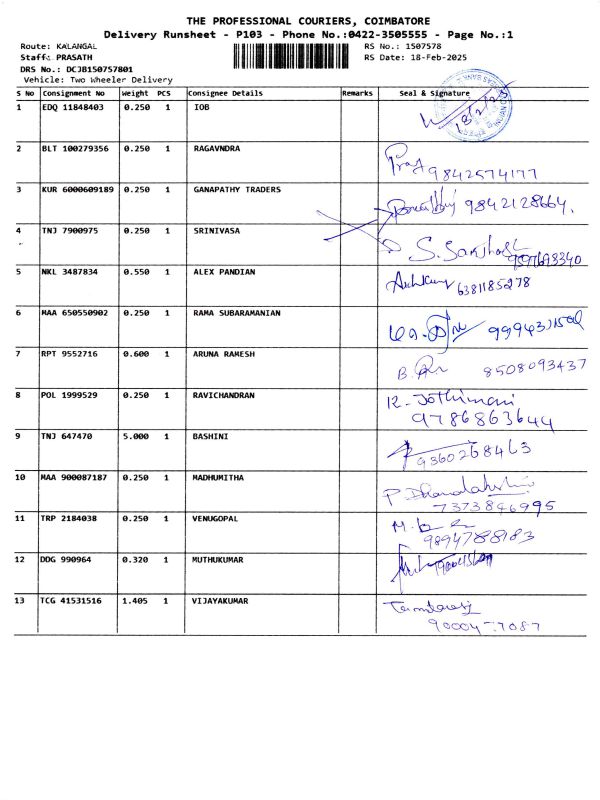 THE PROFESSIONAL COURIERS, COIMBATORE
Delivery Runsheet - P103 - Phone No.:0422-3505555 - Page No.:1
Route: KALANGAL RS No.: 1507578
Staff: PRASATH RS Date: 18-Feb-2025
DRS No.: DCJB150757801
Vehicle: Two Wheeler Delivery
S No Consignment No Weight PCS Consignee Details Remarks Seal & Signature
1 EDQ 11848403 0.250 1 IOB
18/2/25
2 BLT 100279356 0.250 1 RAGAVNDRA
9842574177
3 KUR 6000609189 0.250 1 GANAPATHY TRADERS
9842128664.
4 TNJ 7900975 0.250 1 SRINIVASA
S. Santhosh
5 NKL 3487834 0.550 1 ALEX PANDIAN
6381185278
6 MAA 650550902 0.250 1 RAMA SUBARAMANIAN
7 RPT 9552716 0.600 1 ARUNA RAMESH
B. 8508093437
8 POL 1999529 0.250 1 RAVICHANDRAN
R. Jothimani
9786863644
9 TNJ 647470 5.000 1 BASHINI
9360268463
10 MAA 900087187 0.250 1 MADHUMITHA
P Dhanalakshmi
7373846995
11 TRP 2184038 0.250 1 VENUGOPAL
9894788183
12 DDG 990964 0.320 1 MUTHUKUMAR
13 TCG 41531516 1.405 1 VIJAYAKUMAR